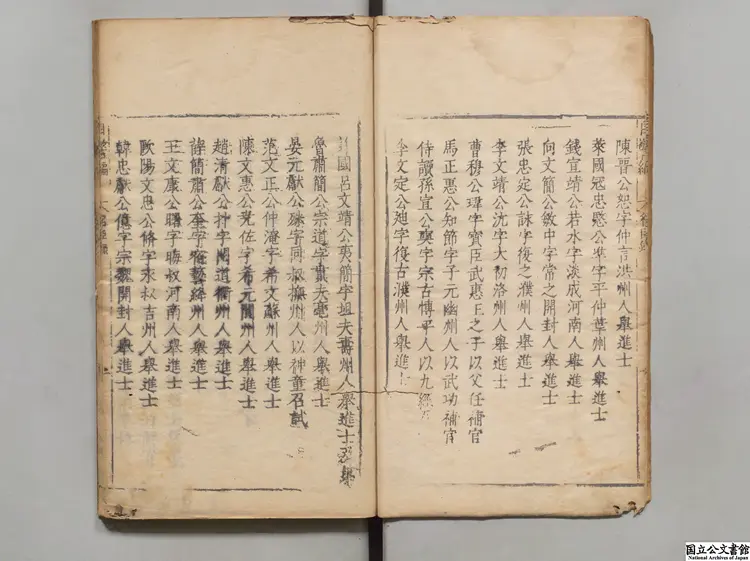 陳晉公恕字仲言洪州人舉進士
萊國寇忠愍公準字平仲華州人舉進士
錢宣靖公若水字淡成河南人舉進士
向文簡公敏中字常之開封人舉進士
張忠定公詠字復之濮州人舉進士
李文靖公沆字太初洺州人舉進士
曹穆公瑋字寶臣武惠王之子以父任補官
馬正惠公知節字子元幽州人以武功補官
侍讀孫宣公奭字宗古博平人以九經
李文定公廸字復古濮州人舉進士
國呂文靖公夷簡字坦夫壽州人舉進士
魯肅簡公宗道字貫夫亳州人舉進士
晏元獻公殊字同叔撫州人以神童召試
范文正公仲淹字希文蘇州人舉進士
陳文惠公堯佐字希元閬州人舉進士
趙清獻公抃字閱道衢州人舉進士
薛簡肅公奎字宿藝絳州人舉進士
王文康公曙字晦叔河南人舉進士
歐陽文忠公脩字永叔吉州人舉進士
韓忠獻公億字宗魏開封人舉進士
国立公文書館
National Archives of Japan